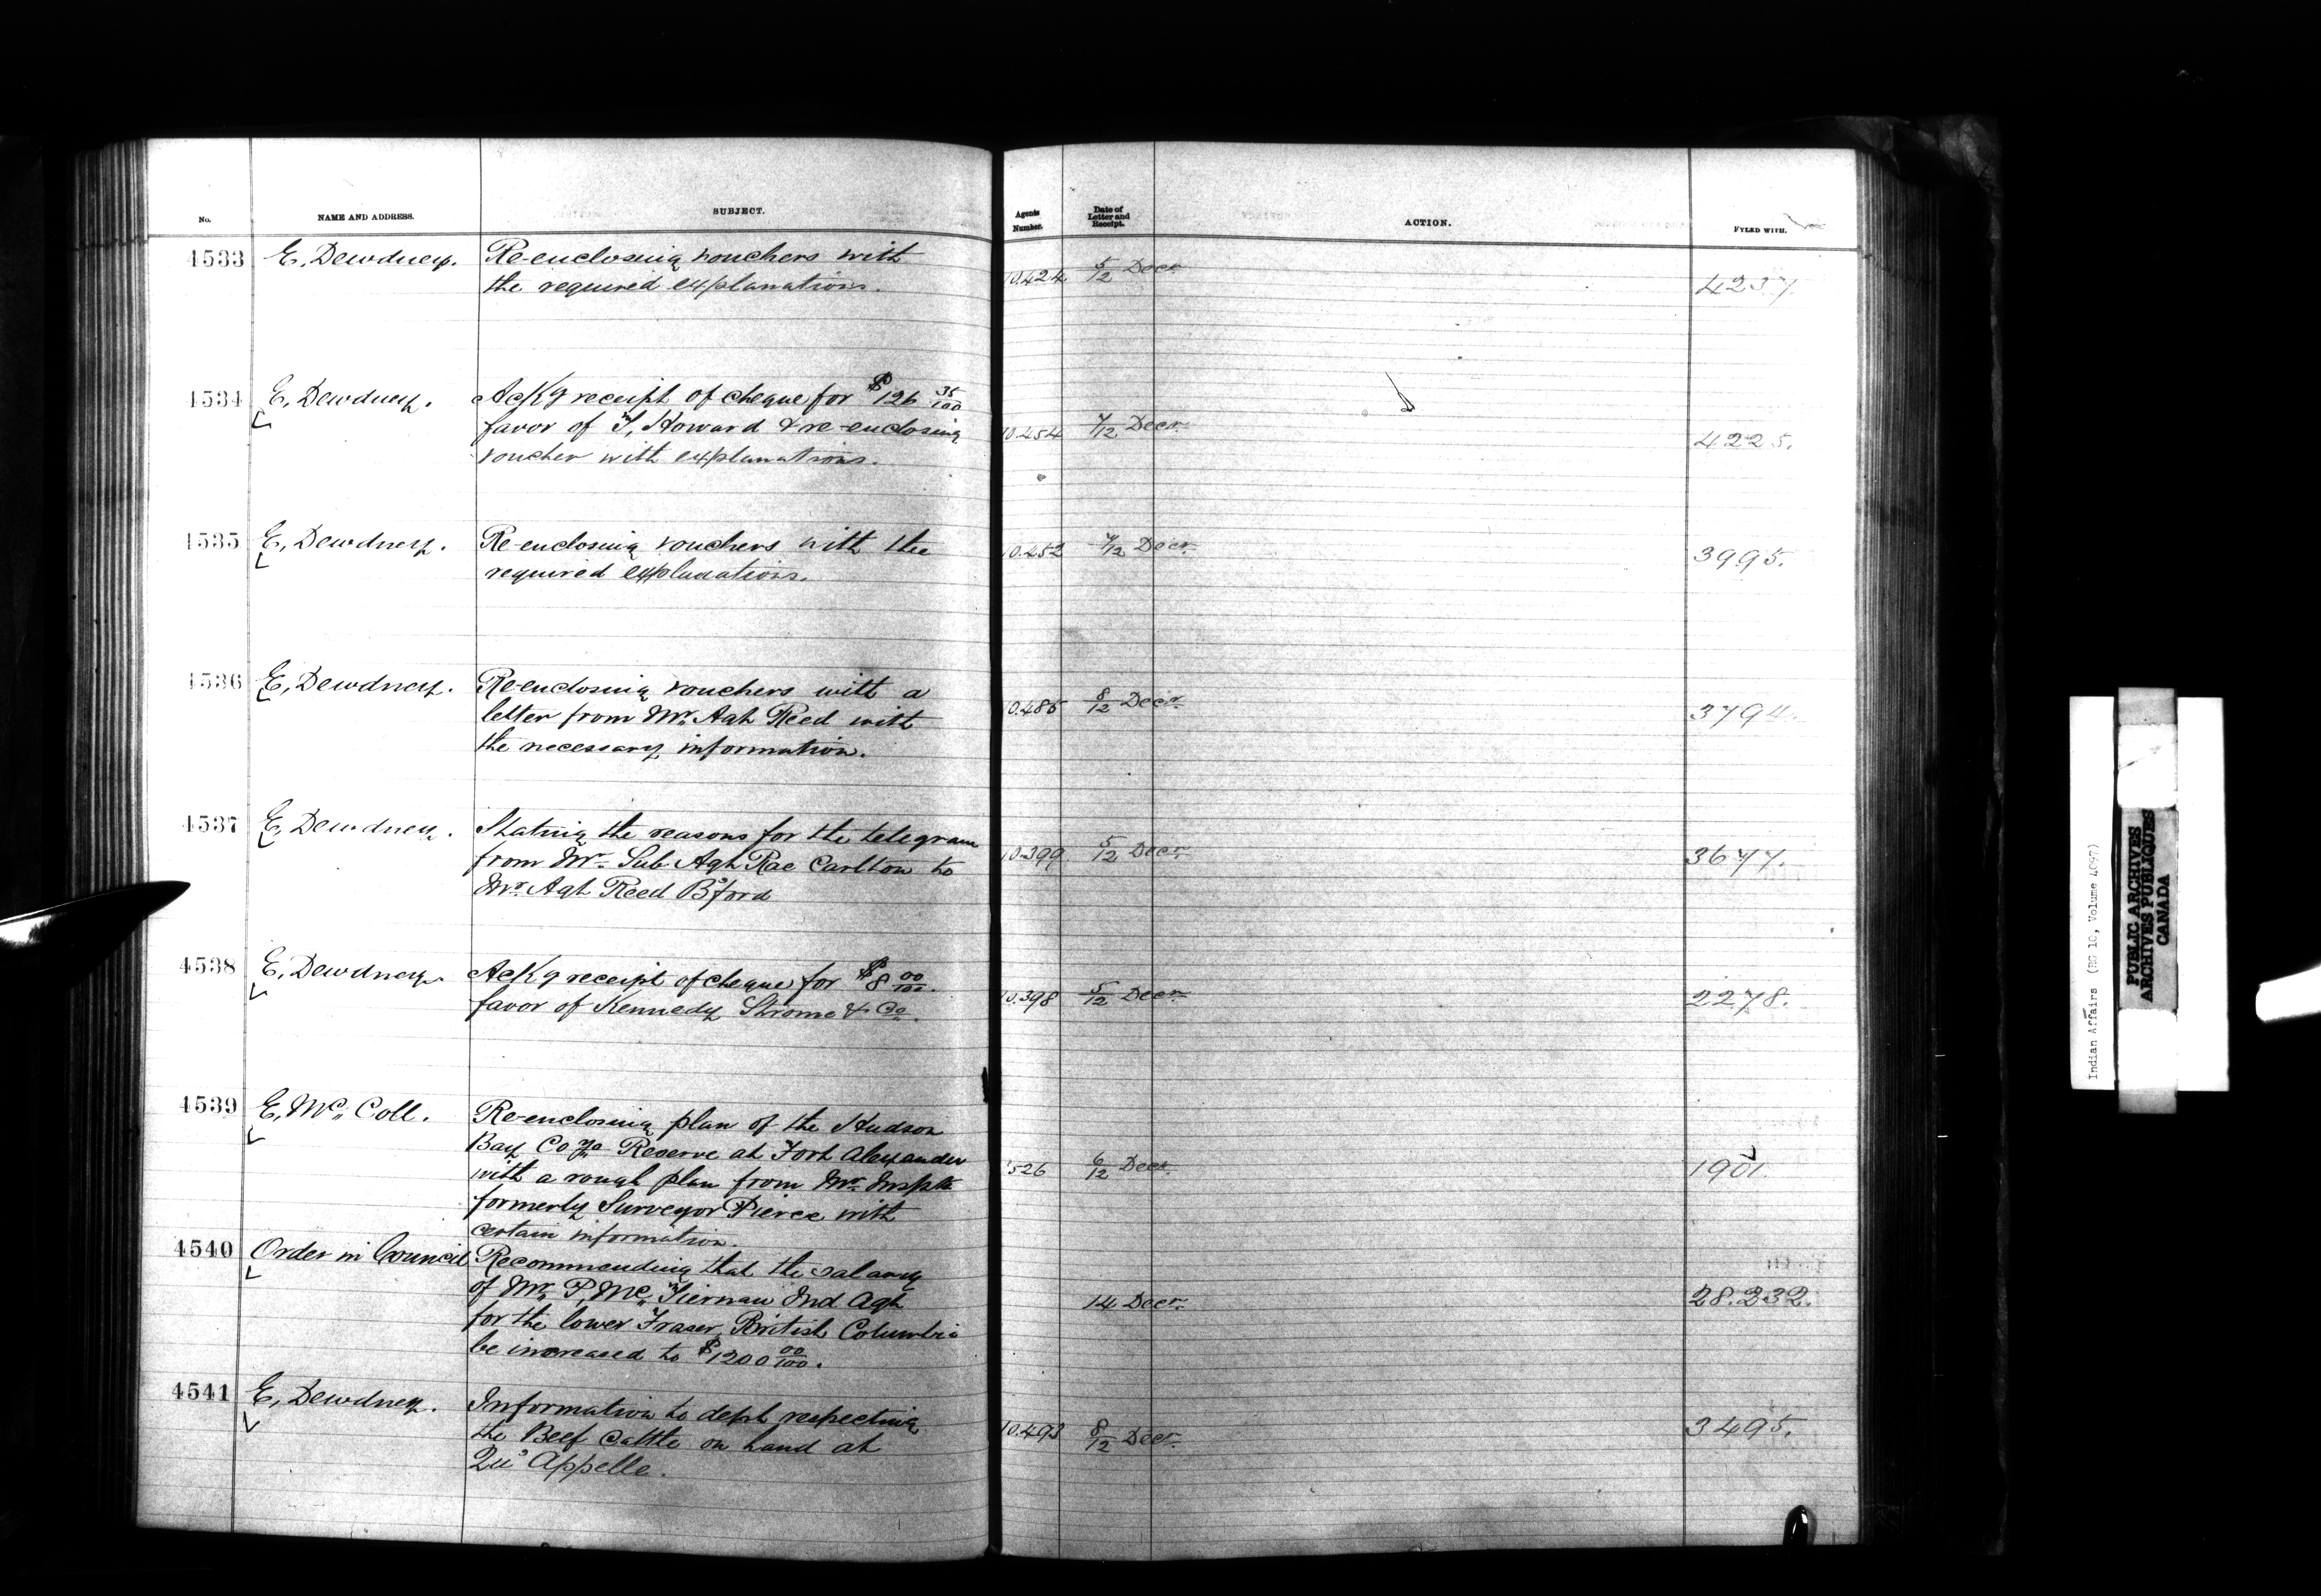 No. NAME AND ADDRESS. SUBJECT. Agents Number. Date of Letter and Receipt. ACTION. FYLED WITH.
4533 E, Dewdney. Re-enclosing vouchers with
the required explanations. 10.424 5/12 Decr 4237.
4534 E, Dewdney. Ack'g receipt of cheque for $126 35/100
favor of T, Howard & re-enclosing 10.454 7/12 Decr. 4225.
voucher with explanations.
4535 E, Dewdney. Re-enclosing vouchers with the 10.452 7/12 Decr. 3995.
required explanations.
4536 E, Dewdney. Re-enclosing vouchers with a
letter from Mr. Agt Reed with 10.485 8/12 Decr. 3794.
the necessary information.
4537 E, Dewdney. Stating the reasons for the telegram
from Mr. Sub Agt Rae Carlton to 10.399 5/12 Decr. 3677.
Mr. Agt Reed B'ford
4538 E, Dewdney. Ack'g receipt of cheque for $8 00/100.
favor of Kennedy Strome & Co. 10.398 5/12 Decr. 2278.
4539 E, Mc Coll. Re-enclosing plan of the Hudson
Bay Coya Reserve at Fort Alexander
with a rough plan from Mr. Inspt 526 6/12 Decr. 1901.
formerly Surveyor Pierce with
certain information.
4540 Order in Council Recommending that the salary
of Mr. P, Mc, Tiernan Ind Agt 14 Decr. 28.232.
for the lower Fraser, British Columbia
be increased to $1200 00/100.
4541 E, Dewdney. Information to dept respecting
the Beef Cattle on hand at 10.493 8/12 Decr. 3495.
Qu'Appelle.
Indian Affairs (RG 10, Volume 4097)
PUBLIC ARCHIVES
ARCHIVES PUBLIQUES
CANADA